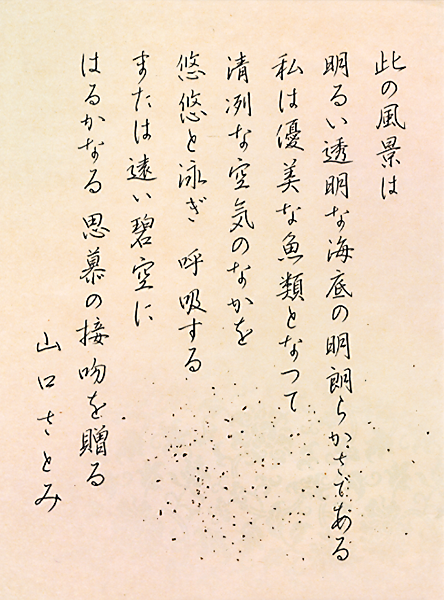 此の風景は
明るい透明な海底の明朗らかさである
私は優美な魚類となつて
清冽な空気のなかを
悠悠と泳ぎ 呼吸する
または遠い碧空に
はるかなる思慕の接吻を贈る
山口さとみ